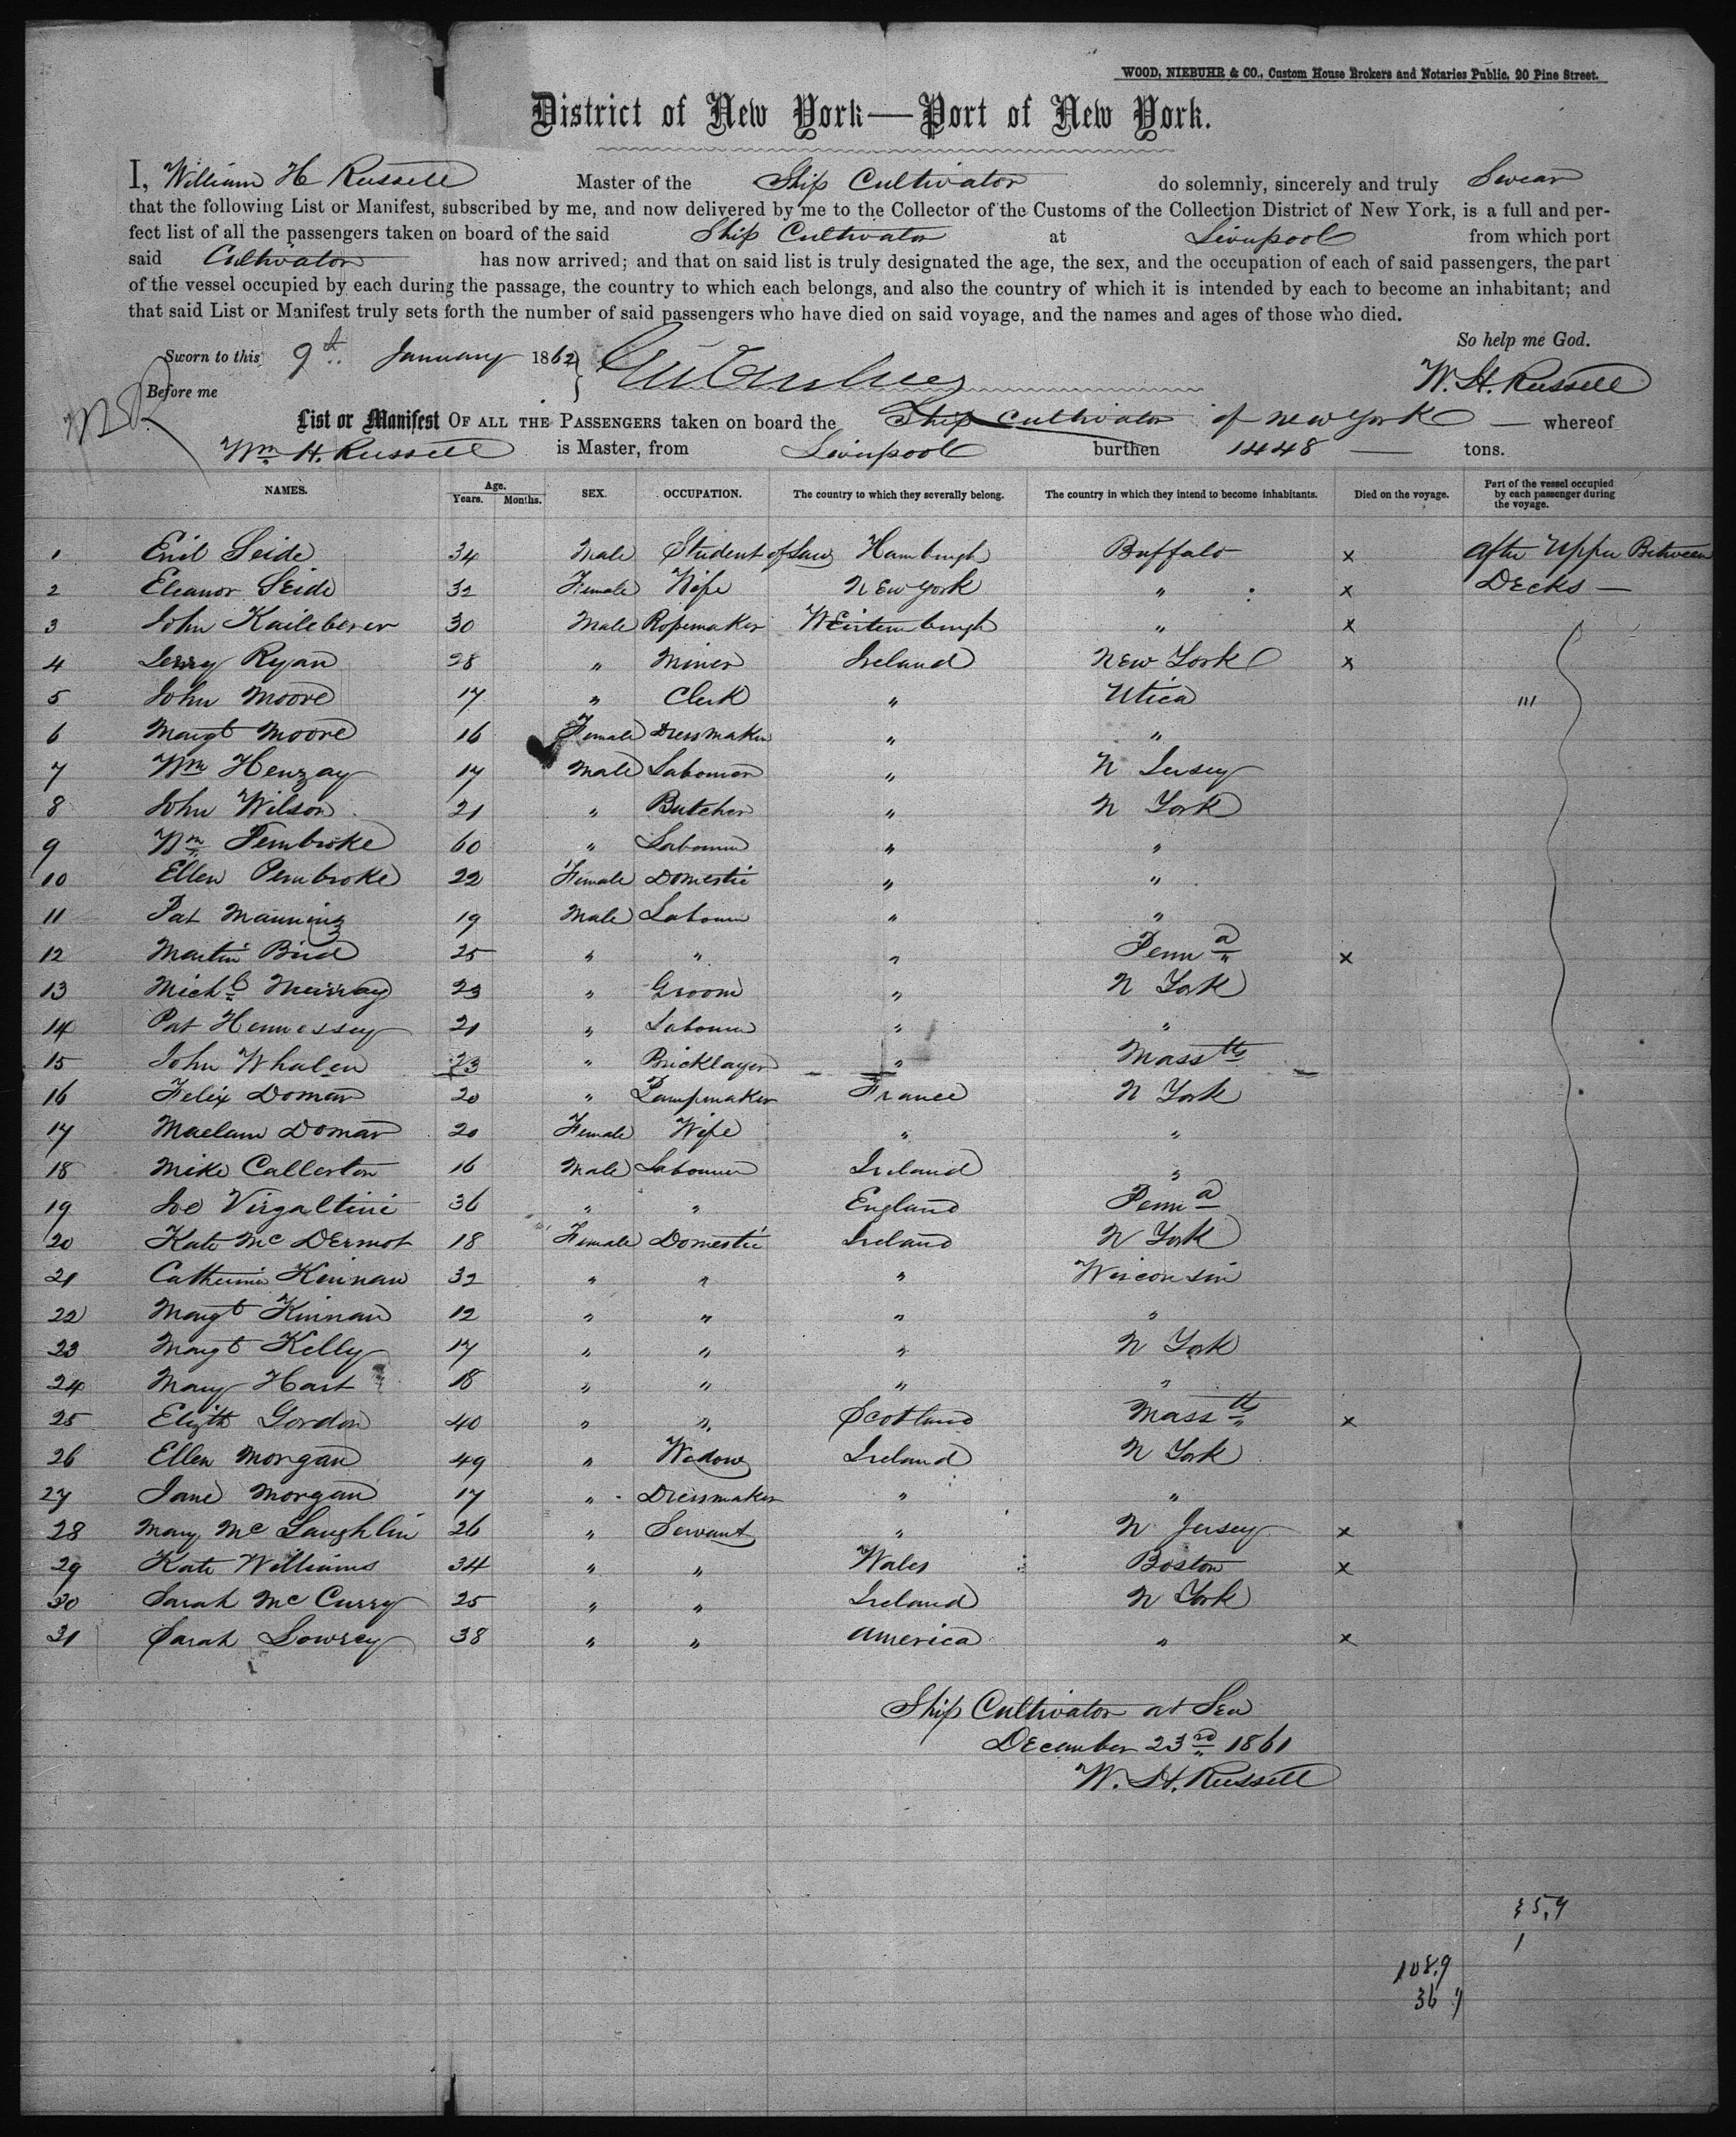 WOOD, NIEBUHR & CO., Custom House Brokers and Notaries Public, 20 Pine Street.
District of New York—Port of New York.
I, William H Russell Master of the Ship Cultivator do solemnly, sincerely and truly Swear
that the following List or Manifest, subscribed by me, and now delivered by me to the Collector of the Customs of the Collection District of New York, is a full and per-
fect list of all the passengers taken on board of the said Ship Cultivator at Liverpool from which port
said Cultivator has now arrived; and that on said list is truly designated the age, the sex, and the occupation of each of said passengers, the part
of the vessel occupied by each during the passage, the country to which each belongs, and also the country of which it is intended by each to become an inhabitant; and
that said List or Manifest truly sets forth the number of said passengers who have died on said voyage, and the names and ages of those who died.
So help me God.
Sworn to this 9th January 1862
W. H. Russell
Before me
List or Manifest OF ALL THE PASSENGERS taken on board the Ship Cultivator of New York — whereof
Wm H. Russell is Master, from Liverpool burthen 1448 — tons.
NAMES. Age. Years. Months. SEX. OCCUPATION. The country to which they severally belong. The country in which they intend to become inhabitants. Died on the voyage. Part of the vessel occupied by each passenger during the voyage.
1 Emil Seide 34 Male Student of Law Hamburgh Buffalo x After Upper Between
2 Eleanor Seide 32 Female Wife New York " x Decks —
3 John Kaileberer 30 Male Ropemaker Weirtemburgh " x
4 Jerry Ryan 28 " Miner Ireland New York x
5 John Moore 17 " Clerk " Utica "'
6 Margt Moore 16 Female Dressmaker " "
7 Wm Henzay 17 Male Labourer " N Jersey
8 John Wilson 21 " Butcher " N York
9 Wm Pembroke 60 " Labourer " "
10 Ellen Pembroke 22 Female Domestic " "
11 Pat Manning 19 Male Labourer " "
12 Martin Bird 25 " " " Penna x
13 Michl Murray 23 " Groom " N York
14 Pat Hennessey 21 " Labourer " "
15 John Whalen 23 " Bricklayer " Masstts
16 Felix Domar 20 " Lampmaker France N York
17 Maelam Domar 20 Female Wife " "
18 Mike Callerton 16 Male Labourer Ireland "
19 Joe Virgaltini 36 " " England Penna
20 Kate Mc Dermot 18 Female Domestic Ireland N York
21 Catherine Kinnan 32 " " " Wisconsin
22 Margt Kinnan 12 " " " "
23 Margt Kelly 17 " " " N York
24 Mary Hart 18 " " " "
25 Elizth Gordon 40 " " Scotland Masstts x
26 Ellen Morgan 49 " Widow Ireland N York
27 Jane Morgan 17 " Dressmaker " "
28 Mary Mc Laughlin 26 " Servant " N Jersey x
29 Kate Williams 34 " " Wales Boston x
30 Sarah Mc Curry 25 " " Ireland N York
31 Sarah Lowrey 38 " " America " x
Ship Cultivator at Sea
December 23rd 1861
W. H. Russell
1
108.9